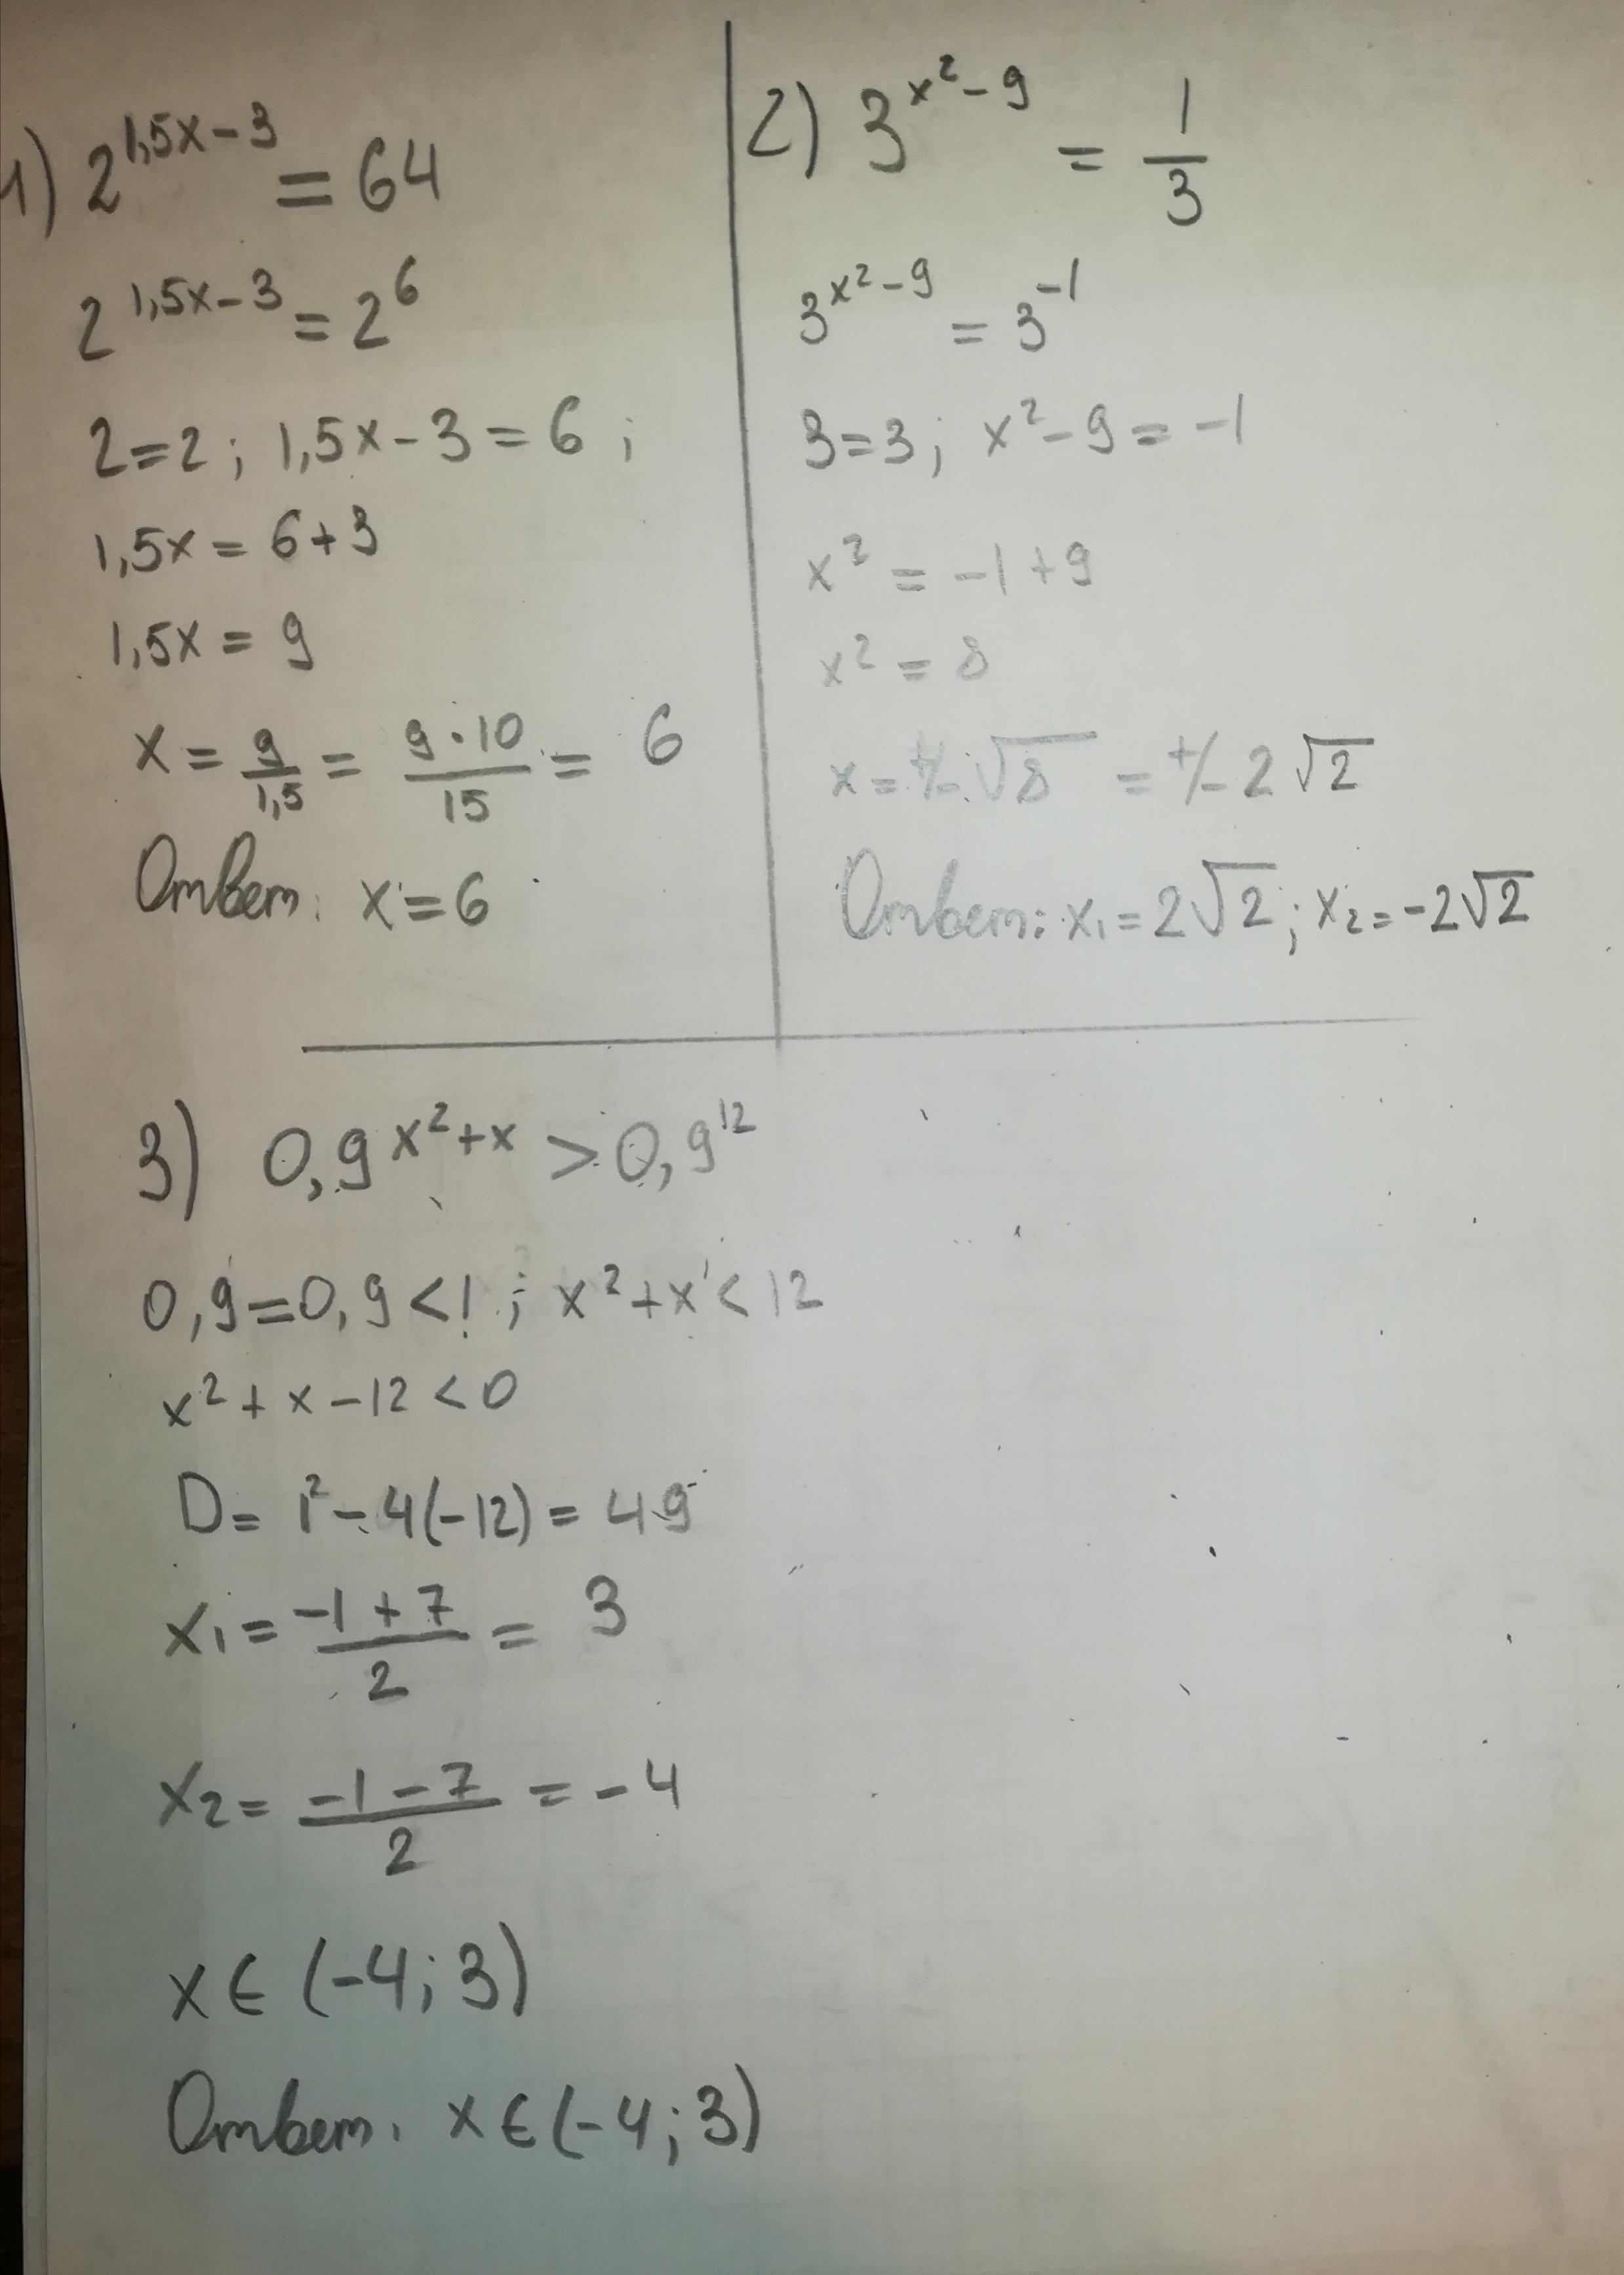 1) 2^{1,5x-3} = 64
2^{1,5x-3} = 2^6
2=2; 1,5x-3=6;
1,5x = 6+3
1,5x = 9
x = 9/1,5 = 9·10/15 = 6
Ответ: x=6
2) 3^{x^2-9} = 1/3
3^{x^2-9} = 3^{-1}
3=3; x^2-9=-1
x^2 = -1+9
x^2 = 8
x = +/- √8 = +/- 2√2
Ответ: x1=2√2; x2=-2√2
3) 0,9^{x^2+x} > 0,9^{12}
0,9=0,9<1; x^2+x<12
x^2+x-12<0
D= 1^2-4(-12)=49
x1= (-1+7)/2 = 3
x2= (-1-7)/2 = -4
x∈(-4;3)
Ответ. x∈(-4;3)